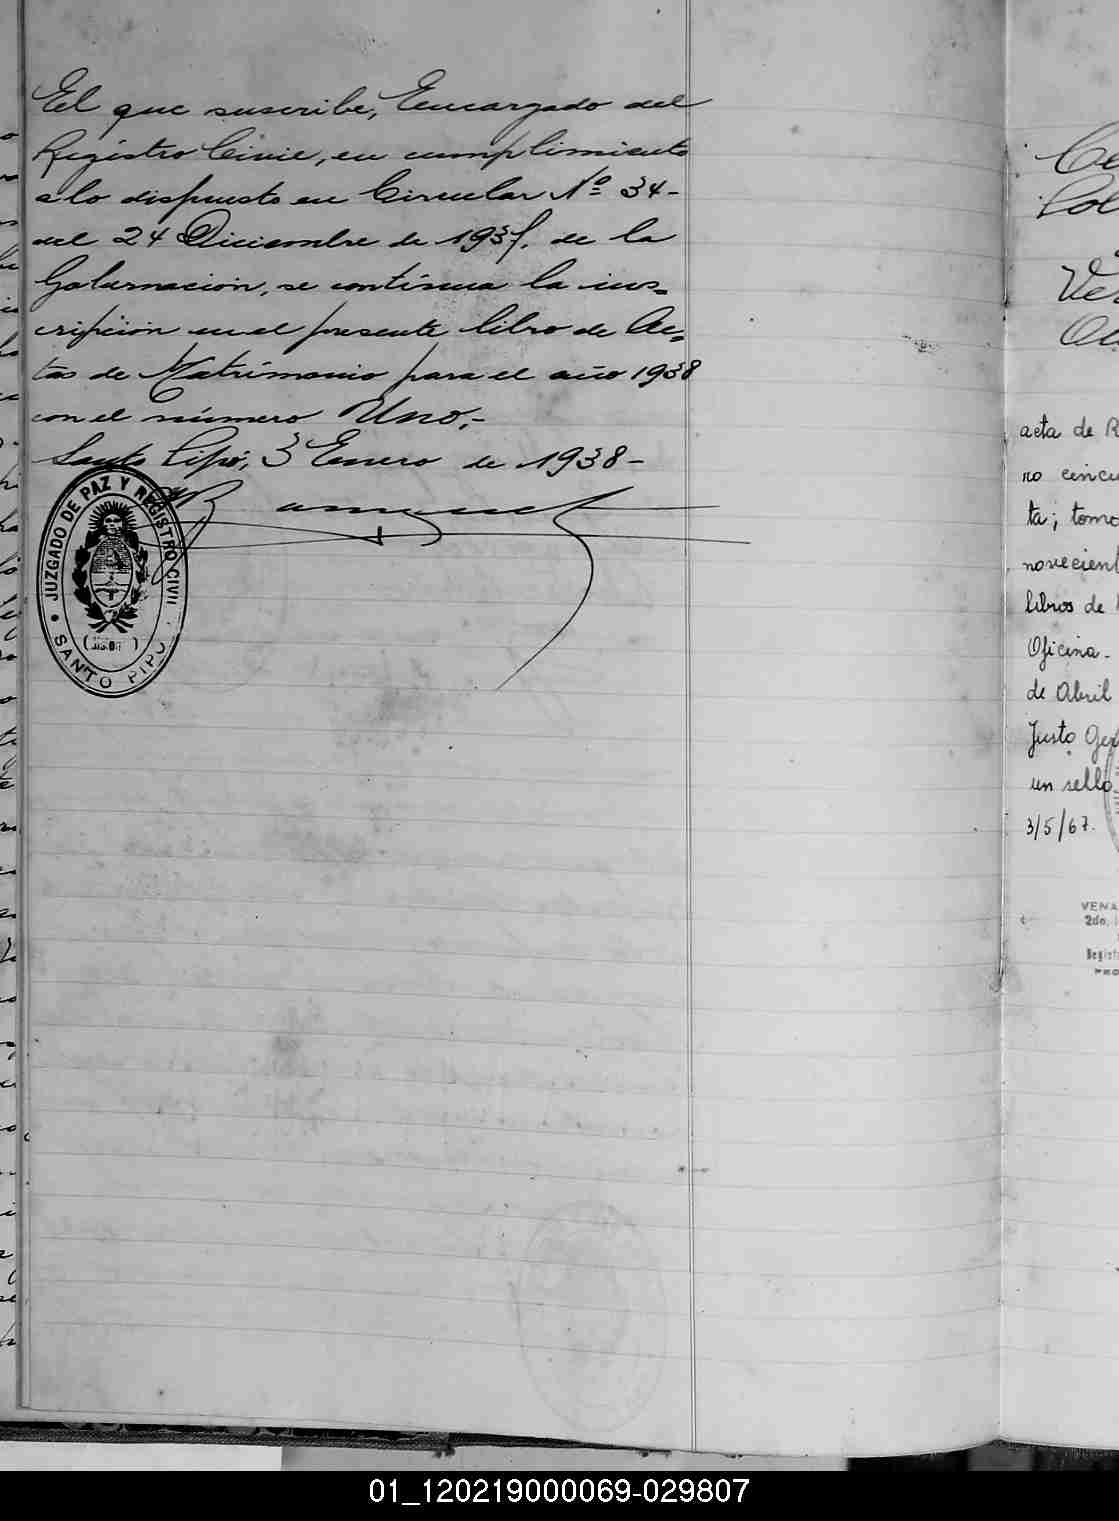 El que suscribe, Encargado del
Registro Civil, en cumplimiento
a lo dispuesto en Circular Nº 34-
del 24 Diciembre de 1937, de la
Gobernación, se continua la ins-
cripción en el presente libro de Ac-
tas de Matrimonio para el año 1938
con el número Uno,-
Santo Pipó, 3 Enero de 1938-
JUZGADO DE PAZ Y REGISTRO CIVIL
SANTO PIPÓ
acta de R
no cincu
ta; tomo
novecient
libros de
Oficina-
de Abril
Justo Ger
un sello
3/5/67.
VENA
2do.
Regist
PRO
01_120219000069-029807